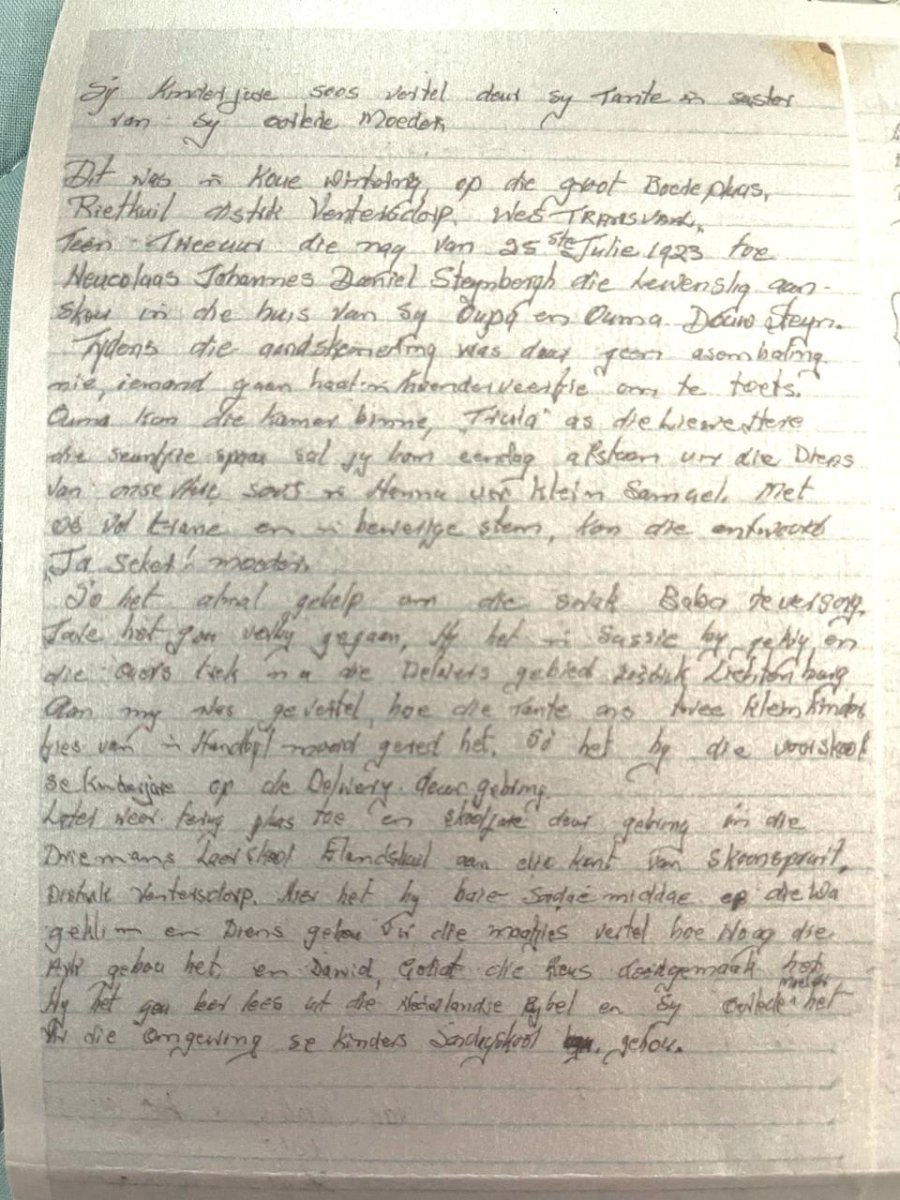 Sy Kinderjare soos vertel deur sy Tante 'n suster
van sy oorlede Moeder.
Dit was 'n koue winterdag, op die groot Boere plaas,
Rietkuil distrik Ventersdorp, WES TRANSVAAL,
Teen Tweeuur die nag van 25ste Julie 1923 toe
Neucolaas Johannes Daniel Steynbergh die Lewenslig aan-
skou in die huis van sy Oupa en Ouma Douw Steyn.
Tydens die aandskemering was daar geen asemhaling
nie, iemand gaan haal 'n hoenderveertjie om te toets.
Ouma kom die kamer binne, "Trula" as die Liewe Here
die seuntjie spaar sal jy hom eendag afstaan vir die Diens
van onse Here soos 'n Hanna vir klein Samuel. Met
oë vol trane en 'n bewerige stem, kom die antwoord
"Ja seker! moeder.
So het almal gehelp om die swak Baba te versorg.
Jare het gou verby gegaan, Hy het 'n Sussie by gekry en
die ouers trek na die Delwers gebied distrik Lichtenburg
Aan my was gevertel, hoe die Tante ons twee klein kinders
van 'n moord gered het. So het hy die voorskool
se kinderjare op die Delwery deur gebring.
Later weer terug plaas toe en skooljare deur gebring in die
Driemans Laerskool Elandskuil aan die kant van Skoonspruit,
Distrik Ventersdorp. Hier het hy baie Sondae middae op die wa
geklim en Diens gehou Vir die maatjies vertel hoe Noag die
Ark gebou het en Dawid, Goliat die Reus doodgemaak het
Hy het gou leer lees uit die Nederlandse Bybel en Sy oorlede moeder het
vir die omgewing se kinders Sondagskool gehou.